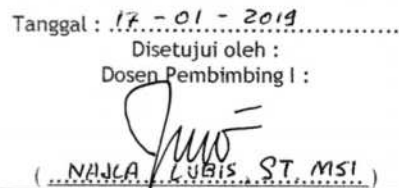 Tanggal : 17 - 01 - 2019
Disetujui oleh :
Dosen Pembimbing I :
( NAJLA LUBIS, ST, MSI )